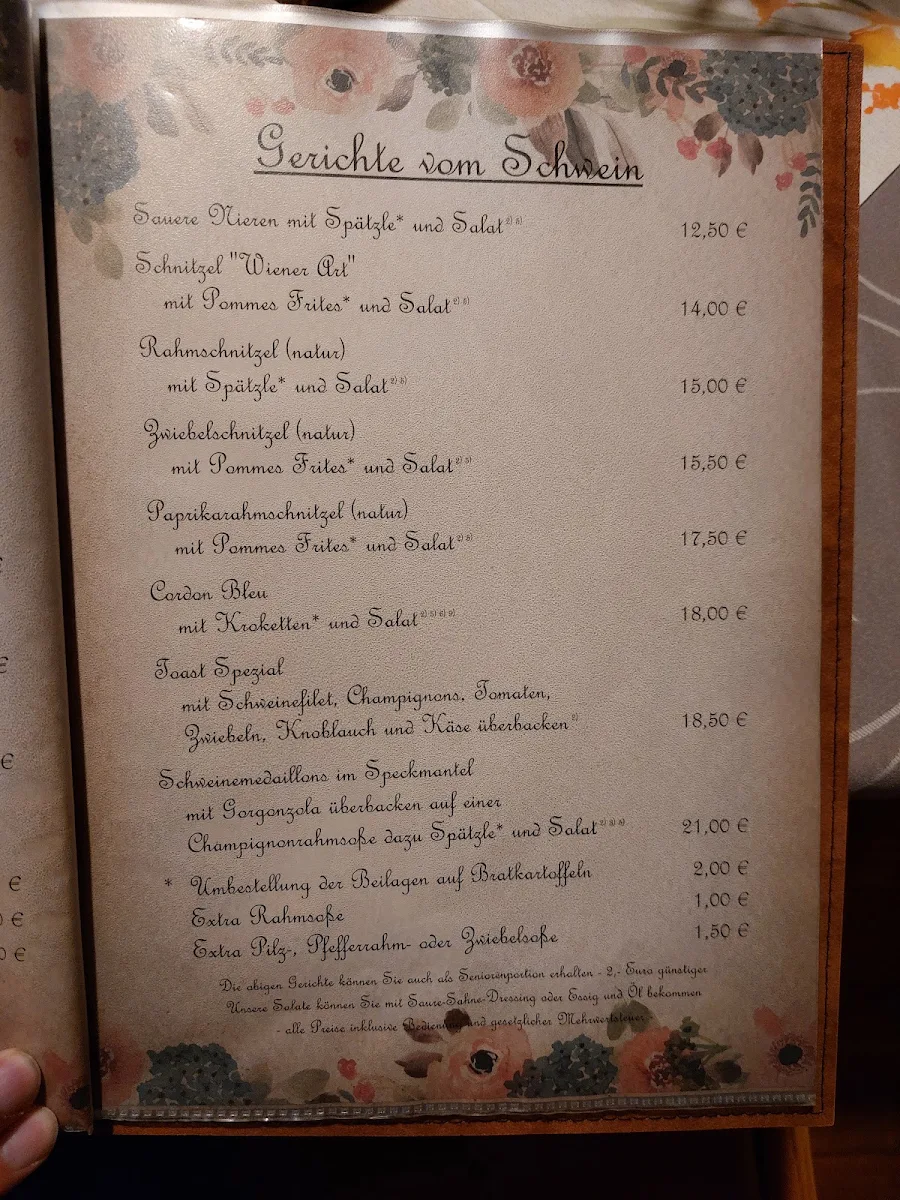 Gerichte vom Schwein
Sauere Nieren mit Spätzle* und Salat 12,50 €
Schnitzel "Wiener Art"
mit Pommes Frites* und Salat 14,00 €
Rahmschnitzel (natur)
mit Spätzle* und Salat 15,00 €
Zwiebelschnitzel (natur)
mit Pommes Frites* und Salat 15,50 €
Paprikarahmschnitzel (natur)
mit Pommes Frites* und Salat 17,50 €
Cordon Bleu
mit Kroketten* und Salat 18,00 €
Toast Spezial
mit Schweinefilet, Champignons, Tomaten,
Zwiebeln, Knoblauch und Käse überbacken 18,50 €
Schweinemedaillons im Speckmantel
mit Gorgonzola überbacken auf einer
Champignonrahmsoße dazu Spätzle* und Salat 21,00 €
* Umbestellung der Beilagen auf Bratkartoffeln 2,00 €
Extra Rahmsoße 1,00 €
Extra Pilz-, Pfefferrahm- oder Zwiebelsoße 1,50 €
Die obigen Gerichte können Sie auch als Seniorenportion erhalten - 2,- Euro günstiger
Unsere Salate können Sie mit Saure-Sahne-Dressing oder Essig und Öl bekommen
- alle Preise inklusive Bedienung und gesetzlicher Mehrwertsteuer -
€
€
€
€
€
€